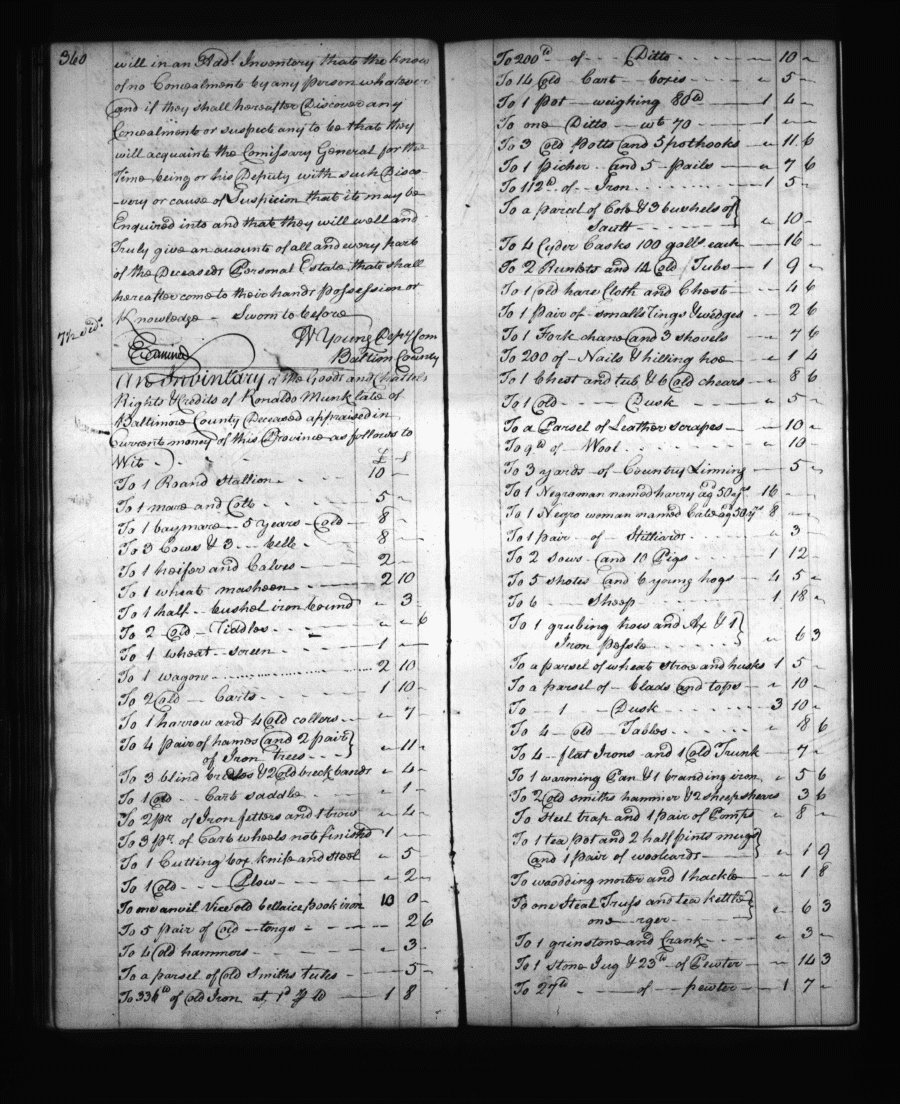 360
will in an Addl. Inventory that the know
of no Concealments by any person whatever
and if they shall hereafter Discover any
Concealments or suspect any to be that they
will acquaint the Comissary General for the
Time being or his Deputy with such Disco
-very or cause of Suspicion that its may be
Enquired into and that they will well and
Truly give an accounts of all and every part
of the Deceaseds Personal Estate that shall
hereafter come to their hands possession or
Knowledge - Sworn to before
W Young Depy Com
Examined Baltim County
An Inventary of the Goods and Chattels
Rights & Credits of Ronaldo Munk late of
Baltimore County Deceased appraised in
Current money of this Province as follows to
Wit £ s
To 1 Roand Stallion 10 -
To 1 mare and Colt 5 -
To 1 bay mare - 5 years - Old 8 -
To 3 Cows & 3 bells 8 -
To 1 heifer and Calves 2 -
To 1 wheat masheen 2 10
To 1 half - bushel iron bound " 3 -
To 2 Old - Riddles " " 6
To 1 wheat - screen 1 -
To 1 wagone 2 10
To 2 Old - Carts 1 10 -
To 1 harrow and 4 Old collers " 7
To 4 pair of hames and 2 pair
of Iron trees " 11 "
To 3 blind bridles & 2 Old breck bands " 4 -
To 1 Old Cart saddle " 1 -
To 2 pr. of Iron fetters and 1 trow " 4 -
To 3 pr. of Cart wheels not finished 1 -
To 1 Cutting box knife and Steel " 5 -
To 1 Old Plow " 2 -
To one anvil Vice old bellaice pook iron 10 0 -
To 5 pair of Old - tongs 2 6
To 4 Old hammors " 3 -
To a parsel of Old Smiths tules 5 -
To 336 lb of Old Iron at 1d p lb 1 8
To 200 lb of Ditto " 10 "
To 14 Old Cart boxes " 5 -
To 1 Pot weighing 80 lb 1 4 -
To one Ditto wt 70 1 " "
To 3 Old Potts and 5 pothooks " 11 6
To 1 Picher and 5 Pails " 7 6
To 112 lb of Iron 1 5 -
To a parcel of Cole & 3 bushels of
Sault " 10 -
To 4 Cyder Casks 100 galls. each 16 -
To 2 Runlets and 14 Old Tubs 1 9 -
To 1 Old hare Cloth and Chest " 4 6
To 1 Pair of small Tings & wedges 2 6
To 1 Fork chane and 3 shovels " 7 6
To 200 of Nails & hilling hoe " 1 4
To 1 Chest and tub & 6 Old chears " 8 6
To 1 Old Dusk " 5 -
To a Parsel of Leather scrapes " 10 "
To 9 lb of Wool " 10
To 3 yards of Country Linning 5 -
To 1 Negro man named harry ag 50 yrs 16 -
To 1 Negro woman named Cate ag 50 yrs 8 -
To 1 pair of Stilliards " 3
To 2 sows and 10 Pigs 1 12
To 5 shotes and 6 young hogs 4 5 "
To 6 Sheep 1 18 "
To 1 grubing how and Ax & 1
Iron Pessle " 6 3
To a parsel of wheat stroe and husks 1 5 -
To a parsel of blads and tops " 10 -
To 1 Dusk 3 10 -
To 4 old Tables " 18 6
To 4 flat Irons and 1 Old Trunk " 7 "
To 1 warming Pan & 1 branding iron " 5 6
To 2 Old smiths hammer & 2 sheep shears 3 6
To Steel trap and 1 pair of Comps " 8 "
To 1 tea pot and 2 half pints mugs
and 1 pair of woolcards " 1 9
To woodding morter and 1 hackle " 1 8
To one Steal Truss and tea kettle
one " 6 3
To 1 grinstone and Crank " 3 -
To 1 Stone Jug & 23 lb of Pewter " 14 3
To 27 lb of pewter 1 7 "